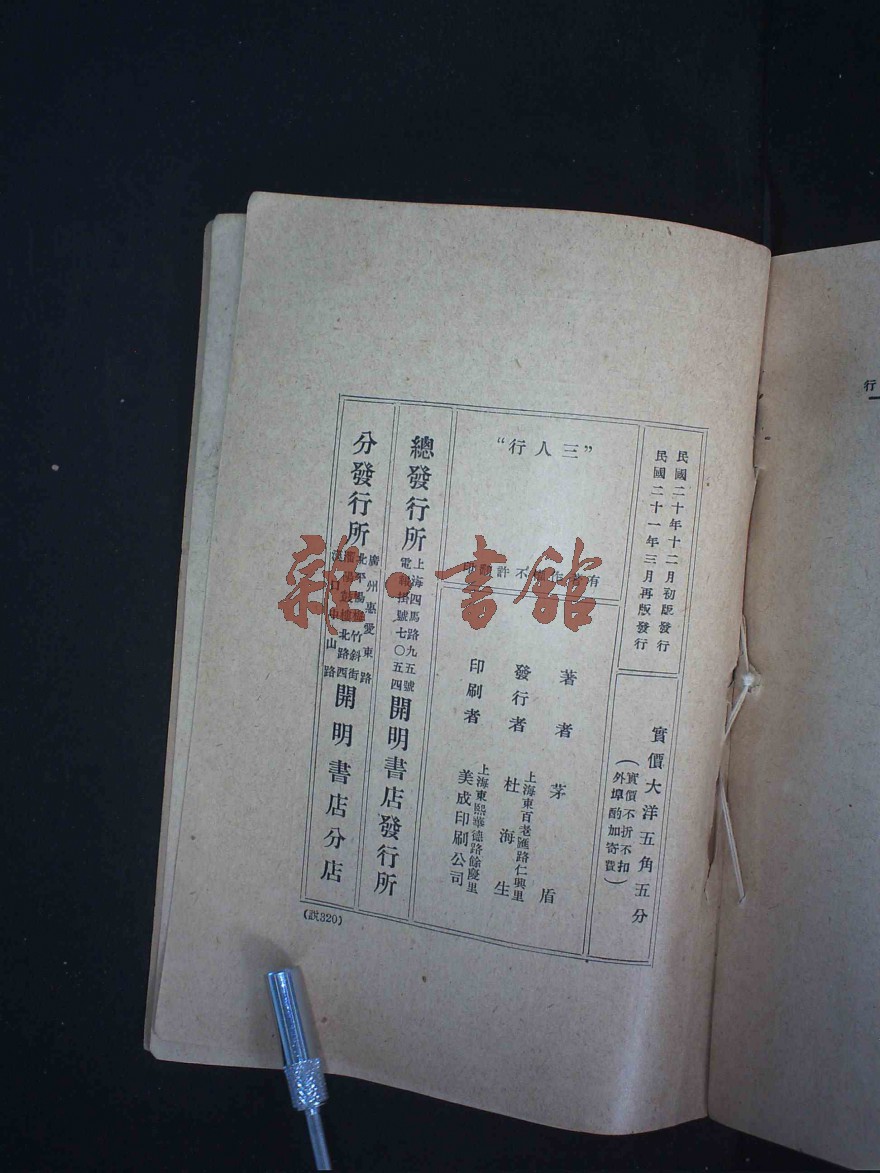 民國二十年十二月初版發行
民國二十一年三月再版發行
實價大洋五角五分
（實價不折不扣
外埠酌加寄費）
“三人行”
有著作權不許翻印
著者 茅盾
發行者 上海東百老匯路仁興里
杜海生
印刷者 上海東熙華德路餘慶里
美成印刷公司
總發行所 上海四馬路九五號
電報掛號七〇五四 開明書店發行所
分發行所 廣州惠愛東路
北平楊梅竹斜街
北路西
漢口中山路 開明書店分店
(說320)
行
雜·書館